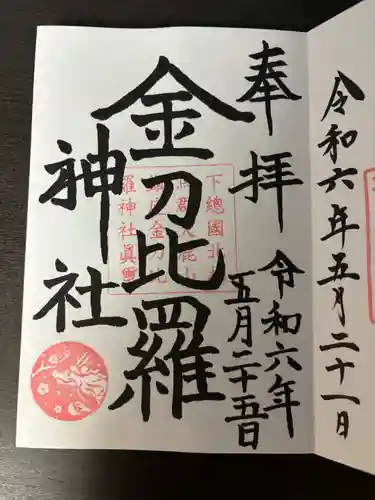 令和六年五月二十一日
奉拝
令和六年
五月二十五日
金刀比羅
神社
下總國北
金刀
羅神社眞璽